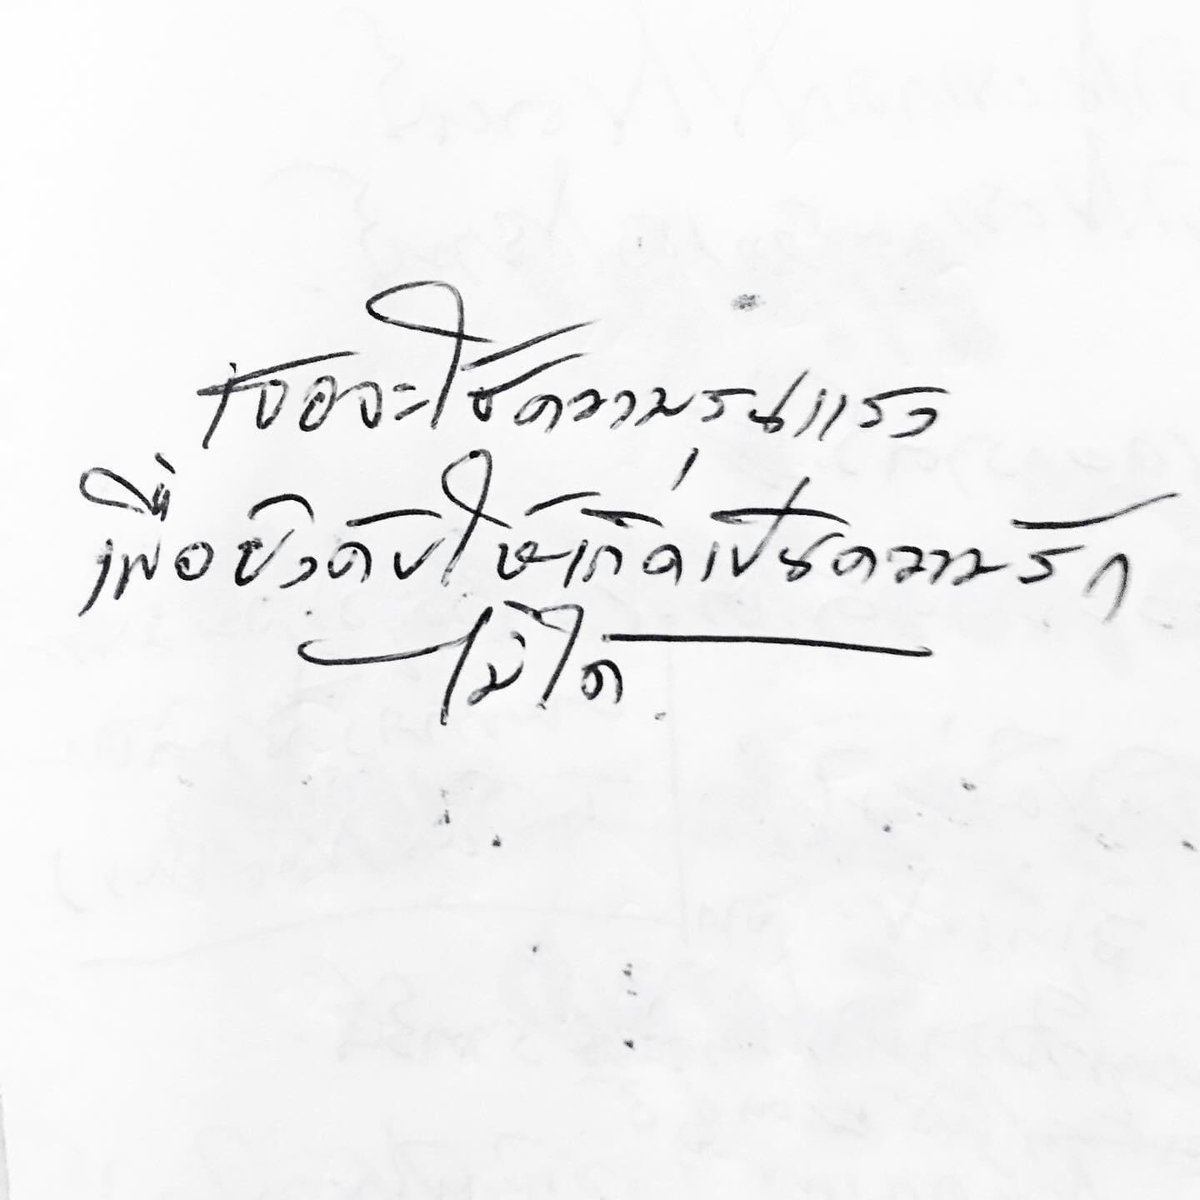 เธอจะใช้ความรุนแรง
เพื่อบังคับให้เกิดเป็นความรัก
ไม่ได้